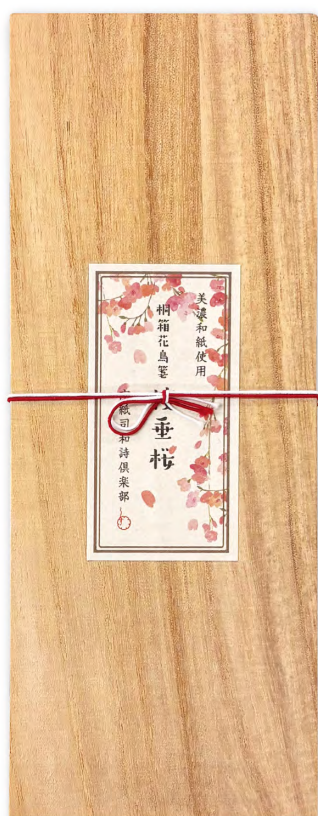 美濃和紙使用
桐箱花鳥箋
枝垂桜
紙司和詩倶楽部